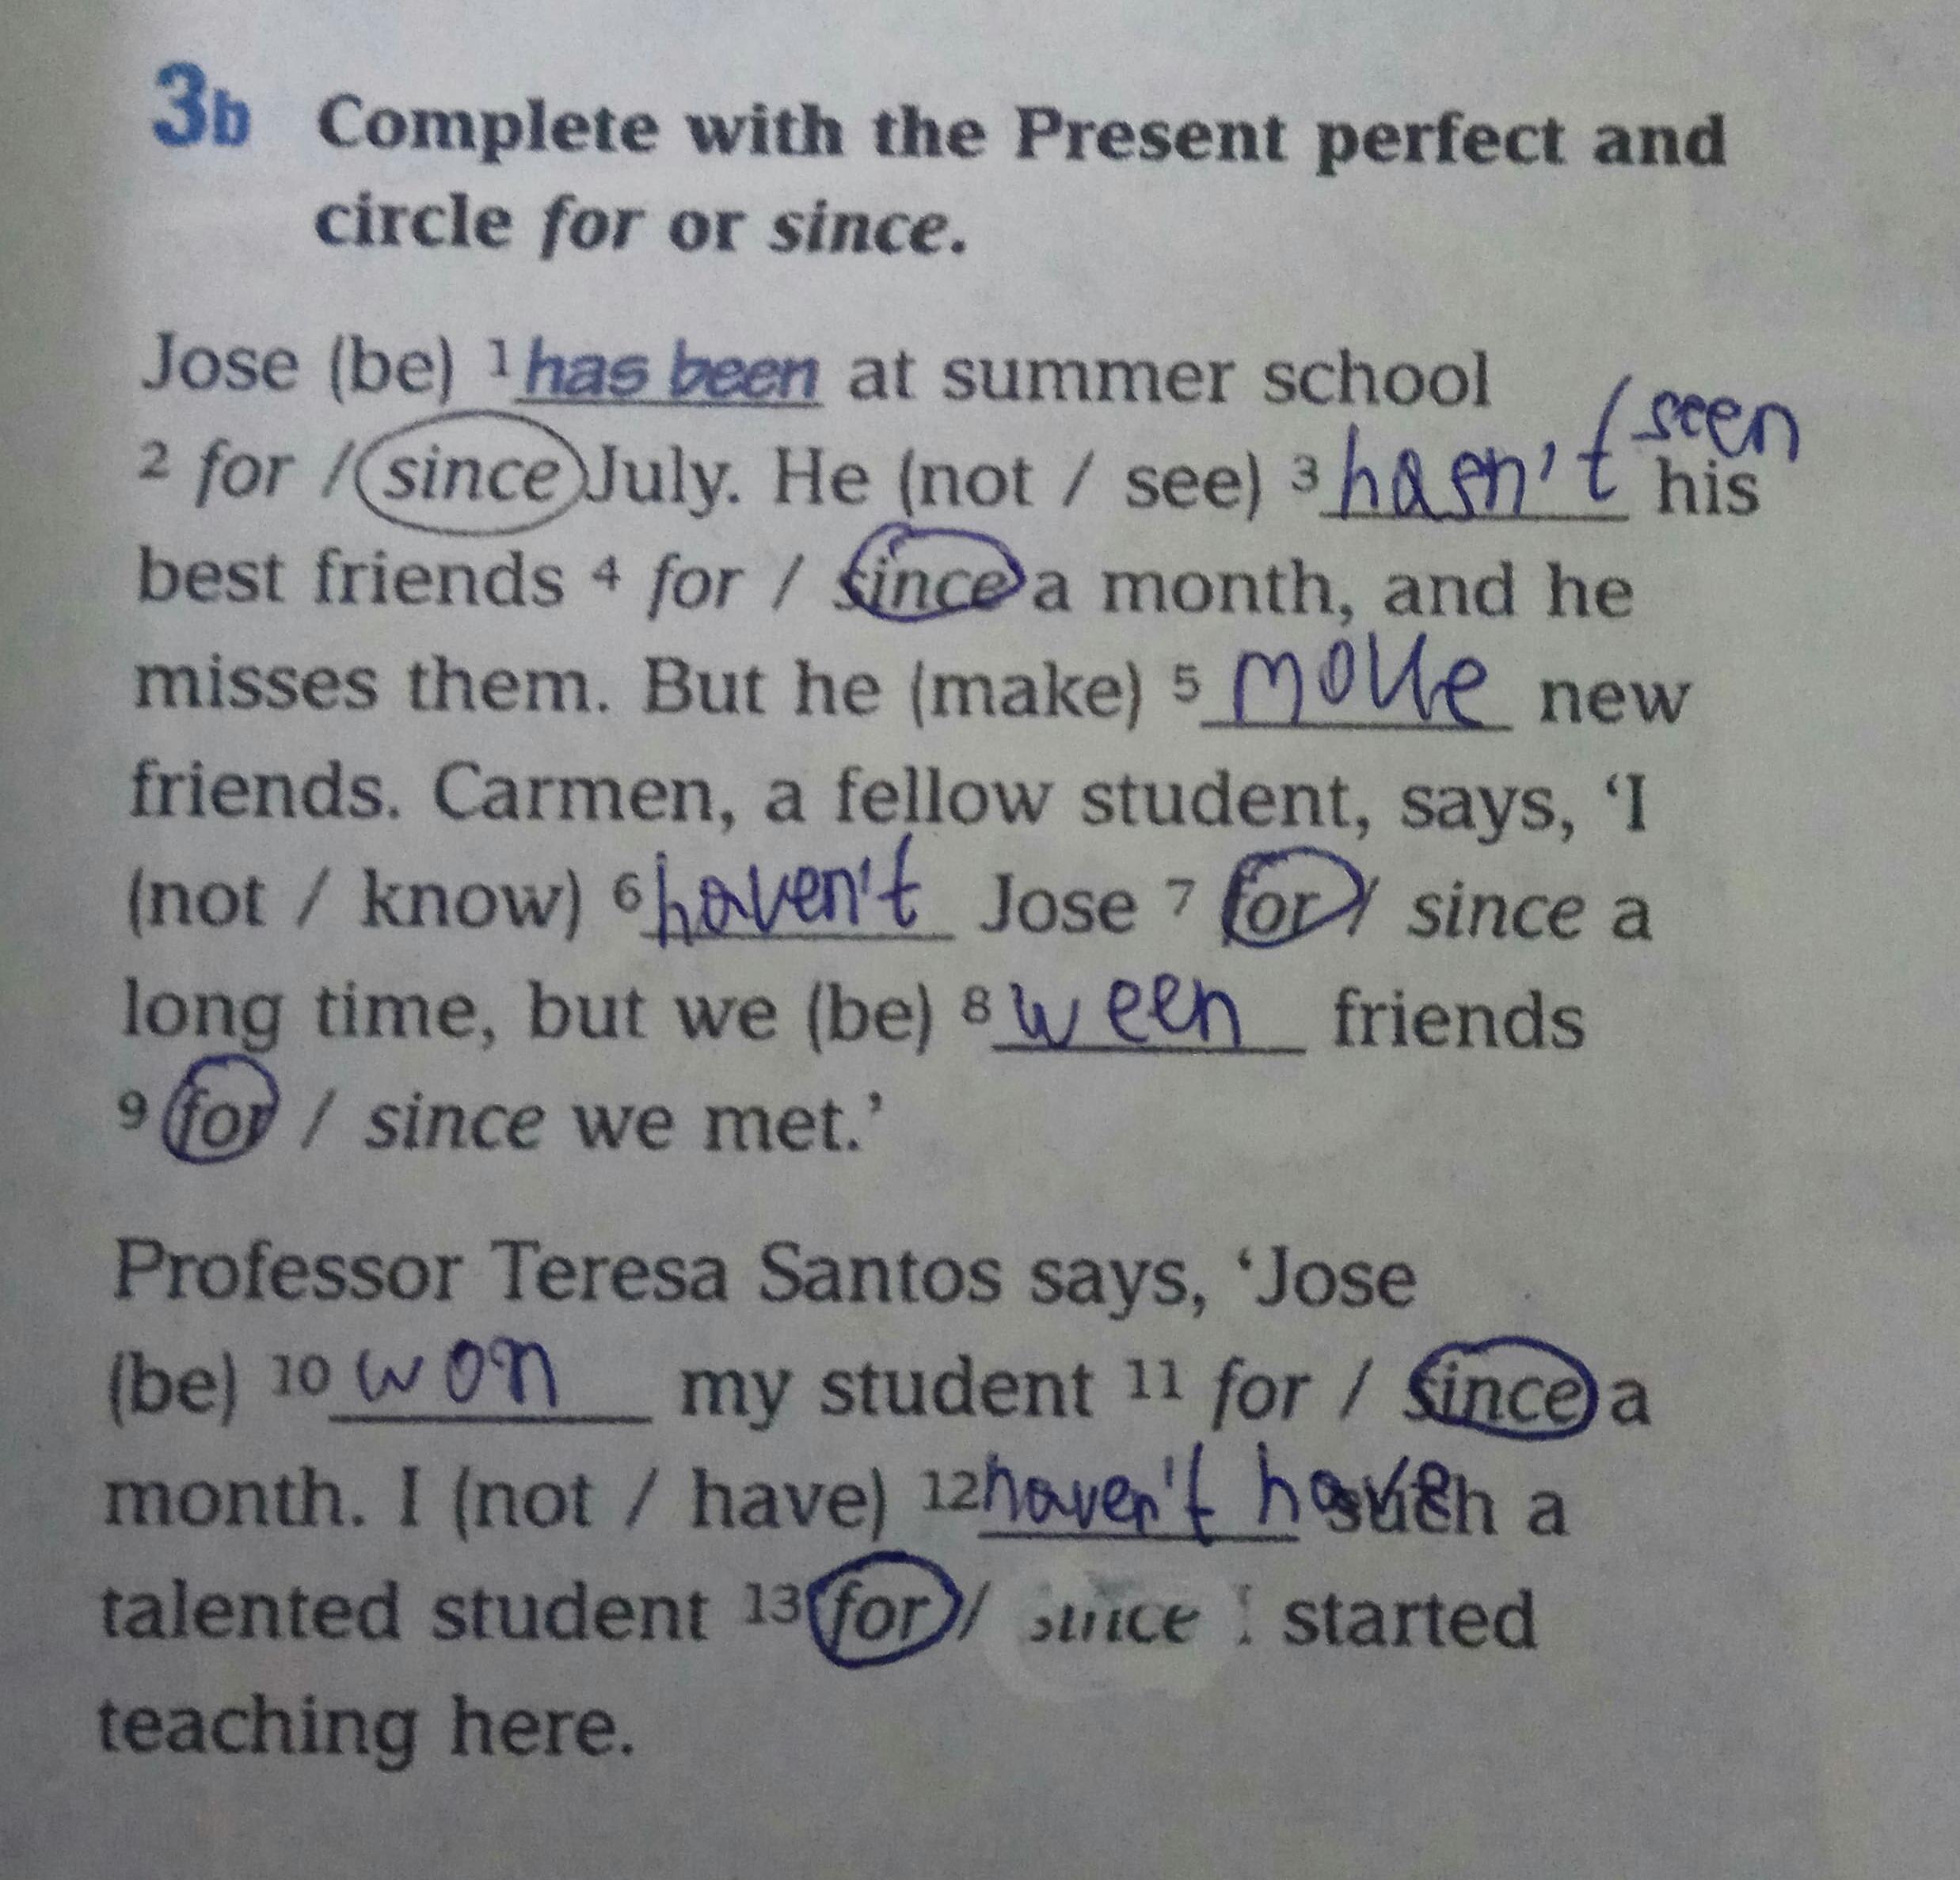 3b Complete with the Present perfect and
circle for or since.
Jose (be) 1 has been at summer school
2 for / since July. He (not / see) 3 hasn't / seen his
best friends 4 for / since a month, and he
misses them. But he (make) 5 move new
friends. Carmen, a fellow student, says, ‘I
(not / know) 6 haven't Jose 7 for / since a
long time, but we (be) 8 ween friends
9 for / since we met.’
Professor Teresa Santos says, ‘Jose
(be) 10 won my student 11 for / since a
month. I (not / have) 12 haven't have such a
talented student 13 for / since I started
teaching here.